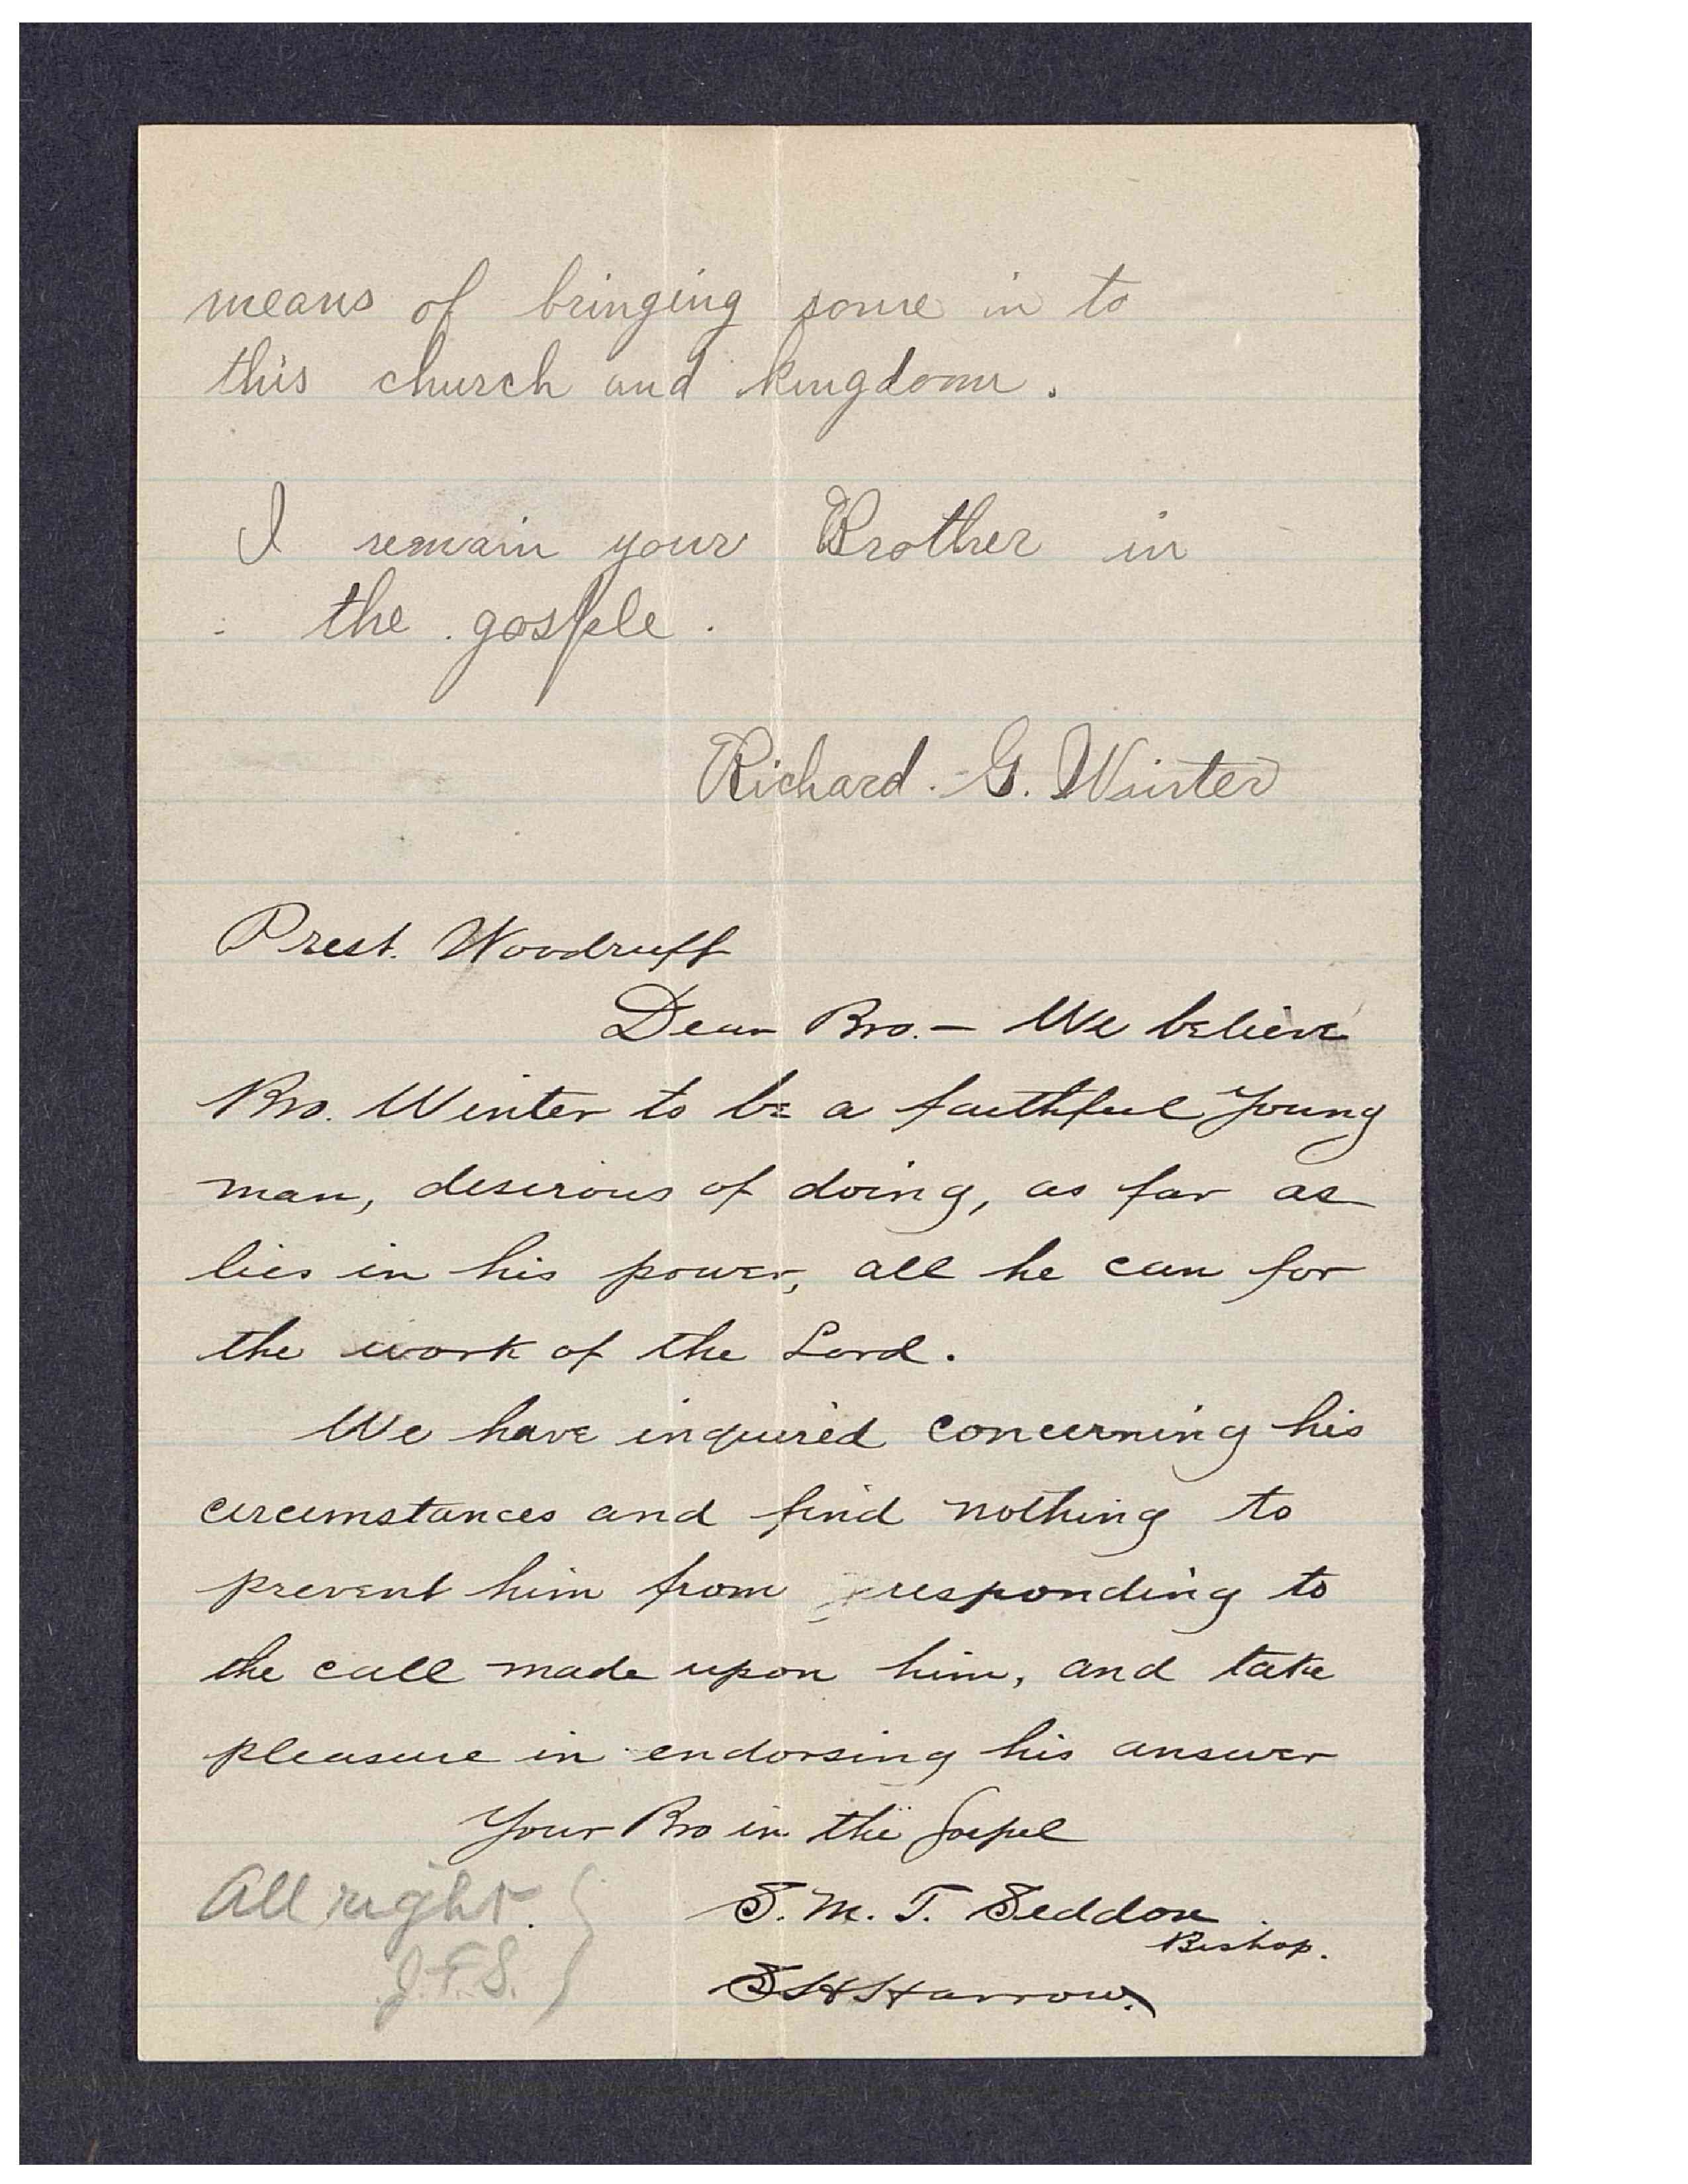 means of bringing some in to
this church and kingdom.
I remain your Brother in
the gosple.
Richard. G. Winter
Prest. Woodruff
Dear Bro. - We believe
Bro. Winter to be a faithful young
man, desirous of doing, as far as
lies in his power, all he can for
the work of the Lord.
We have inquired concerning his
circumstances and find nothing to
prevent him from responding to
the call made upon him, and take
pleasure in endorsing his answer
Your Bro in the Gospel
S. M. T. Seddon
Bishop.
S H Harrow.
All right.
J.F.S.